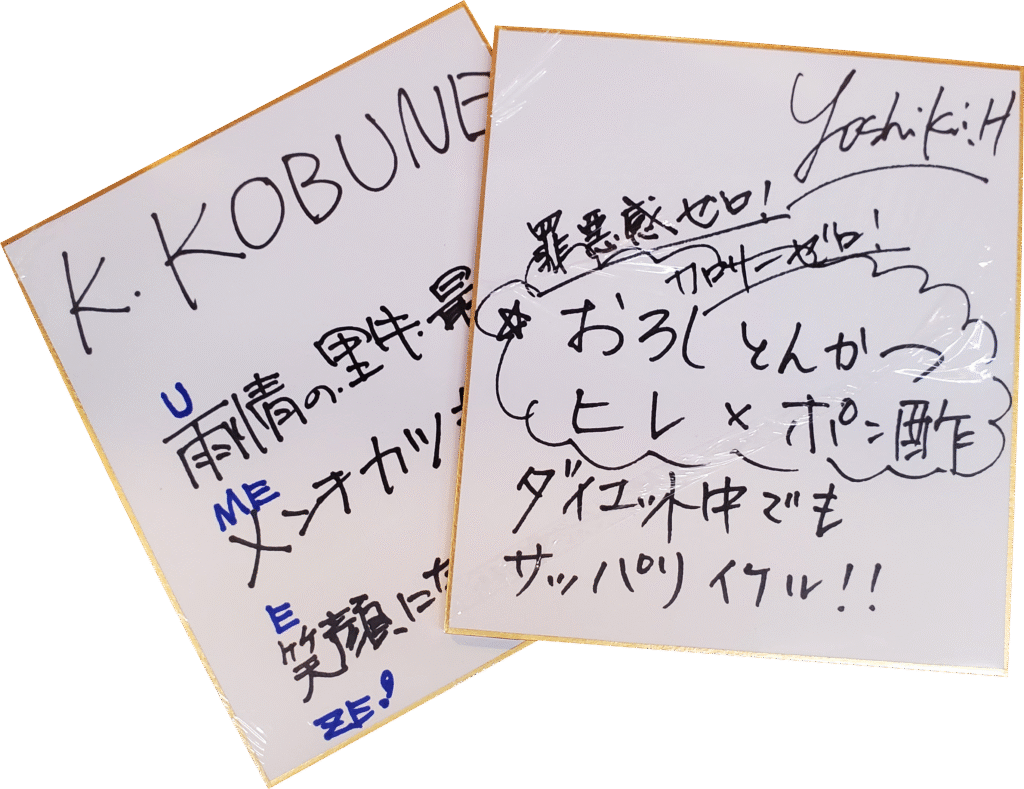 K. KOBUNE
U
雨情の里牛・最
ME
メンチカツ
E
笑顔にな
ZE!
Yoshiki.H
罪悪感ゼロ!
カロリーゼロ!
☆おろしとんかつ
ヒレ×ポン酢
ダイエット中でも
サッパリイケル!!